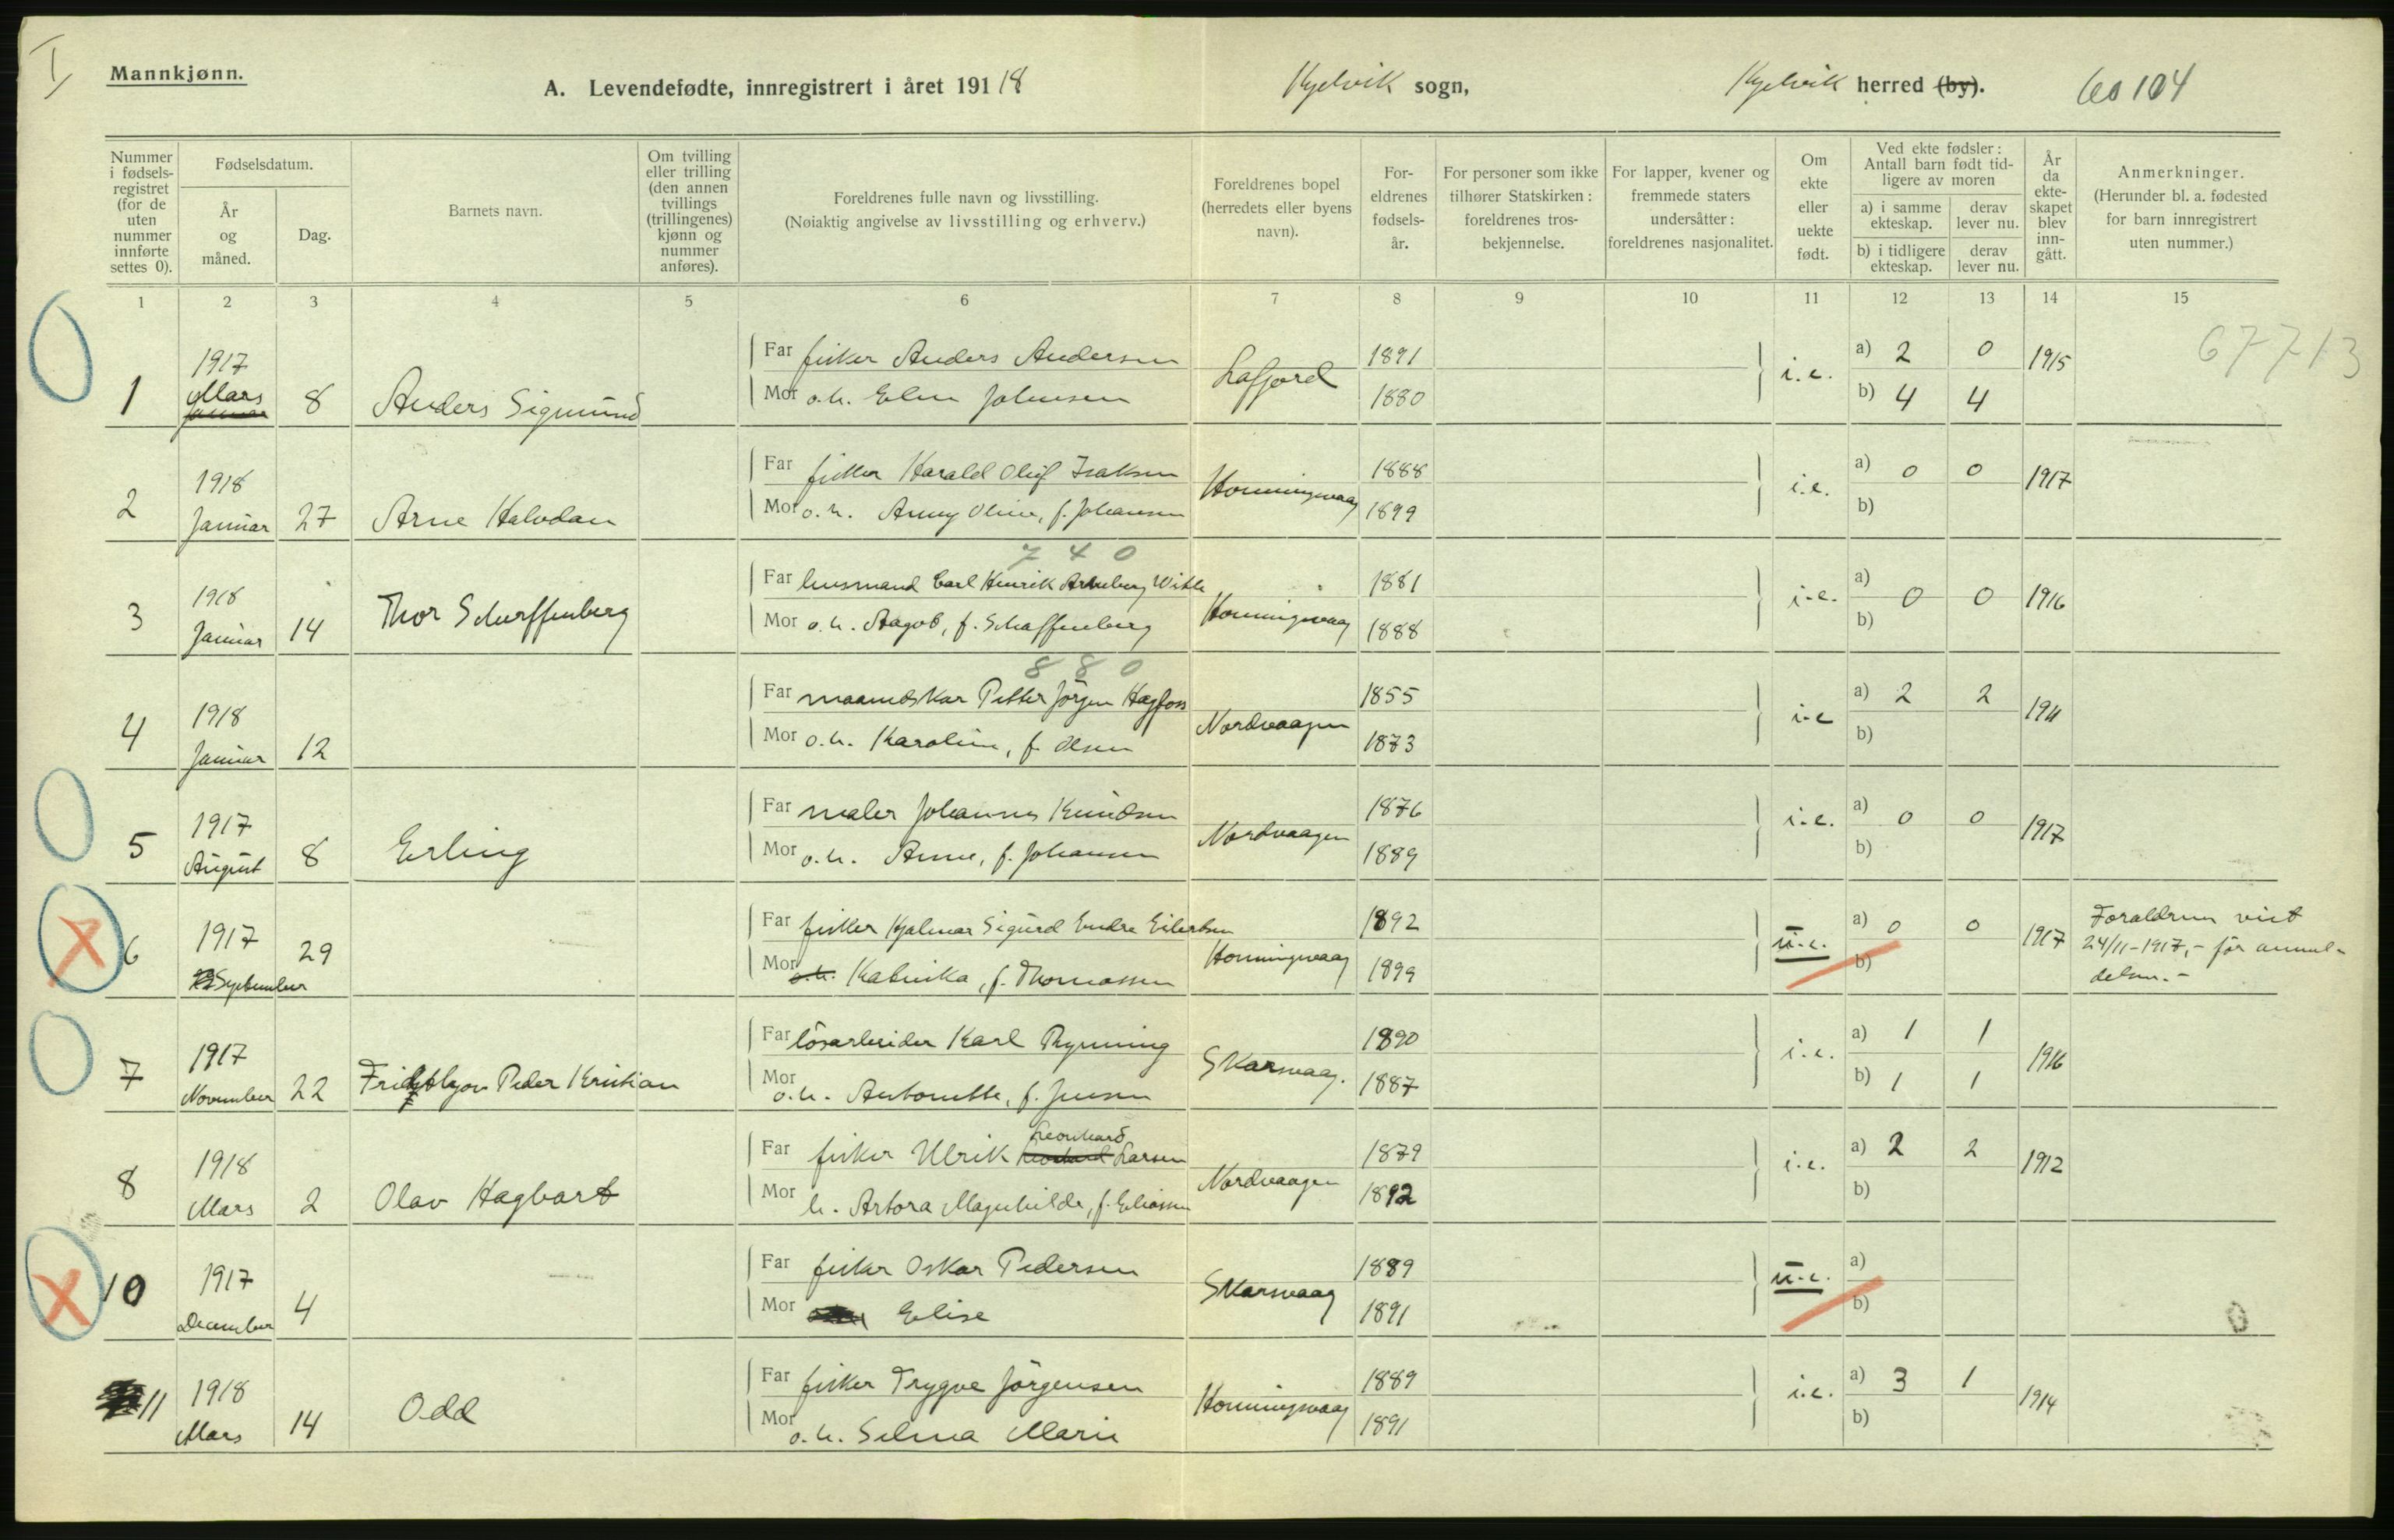 I
Mannkjønn.
A. Levendefødte, innregistrert i året 1918
Kjelvik sogn,
Kjelvik herred (by).
104
Nummer i fødsels-registret (for de uten nummer innførte settes 0).
Fødselsdatum.
År og måned.
Dag.
Barnets navn.
Om tvilling eller trilling (den annen tvillings (trillingenes) kjønn og nummer anføres).
Foreldrenes fulle navn og livsstilling.
(Nøiaktig angivelse av livsstilling og erhverv.)
Foreldrenes bopel (herredets eller byens navn).
For-eldrenes fødsels-år.
For personer som ikke tilhører Statskirken: foreldrenes tros-bekjennelse.
For lapper, kvener og fremmede staters undersåtter: foreldrenes nasjonalitet.
Om ekte eller uekte født.
Ved ekte fødsler: Antall barn født tid-ligere av moren
a) i samme ekteskap.
derav lever nu.
b) i tidligere ekteskap.
derav lever nu.
År da ekte-skapet blev inn-gått.
Anmerkninger.
(Herunder bl. a. fødested for barn innregistrert uten nummer.)
1 2 3 4 5 6 7 8 9 10 11 12 13 14 15
67713
1 1917 Mars Januar 8 Anders Sigmund
Far fisker Anders Andersen Lafjord 1891 i.e. a) 2 0 1915
Mor o.h. Elen Johnsen 1880 b) 4 4
2 1918 Januar 27 Arne Halvdan
Far fisker Harald Oluf Isaksen Honningsvaag 1888 i.e. a) 0 0 1917
Mor o.h. Anny Oline, f. Johansen 1899 b)
7 4 0
3 1918 Januar 14 Thor Scharffenberg
Far lensmand Carl Henrik Arneberg Honningsvaag 1881 i.e. a) 0 0 1916
Mor o.h. Aagot, f. Schaffenberg 1888 b)
8 8 0
4 1918 Januar 12
Far maanedskar Petter Jörgen Hagfoss Nordvaagen 1855 i.e a) 2 2 1911
Mor o.h. Karoline, f. Olsen 1873 b)
5 1917 August 8 Erling
Far maler Johannes Knudsen Nordvaagen 1876 i.e. a) 0 0 1917
Mor o.h. Anne, f. Johansen 1889 b)
6 1917 September 29
Far fisker Hjalmar Sigurd Endre Eilertsen Honningsvaag 1892 u.e. a) 0 0 1917 Foraldrene viet
Mor o.h. Katinka, f. Thomassen 1899 b) 24/11-1917,- før anmel-
delsen.-
7 1917 November 22 Fridthjov Peder Kristian
Far lösarbeider Karl Rynning Skarsvaag. 1890 i.e. a) 1 1 1916
Mor o.h. Antonette, f. Jensen 1887 b) 1 1
8 1918 Mars 2 Olav Hagbart
Leonhard
Far fisker Ulrik Larsen Nordvaagen 1879 i.e. a) 2 2 1912
Mor h. Artora Magnhilde, f. Eliassen 1892 b)
10 1917 December 4
Far fisker Oskar Pedersen Skarsvaag 1889 u.e. a)
Mor Elise 1891 b)
11 1918 Mars 14 Odd
Far fisker Trygve Jörgensen Honningsvaag 1889 i.e. a) 3 1 1914
Mor o.h. Selma Marie 1891 b)